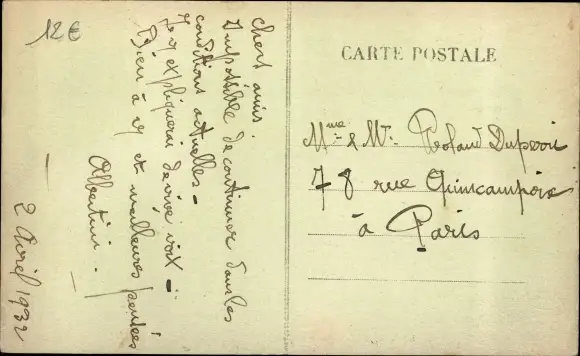 12€
Chers amis.
Impossible de continuer dans les
conditions actuelles -
Je vs expliquerai de vive voix -
Bien à vs et meilleures pensées
Albertini.
2 Avril 1932
CARTE POSTALE
Mme & Mr. Roland Dupson
78 rue Quincampoix
à Paris